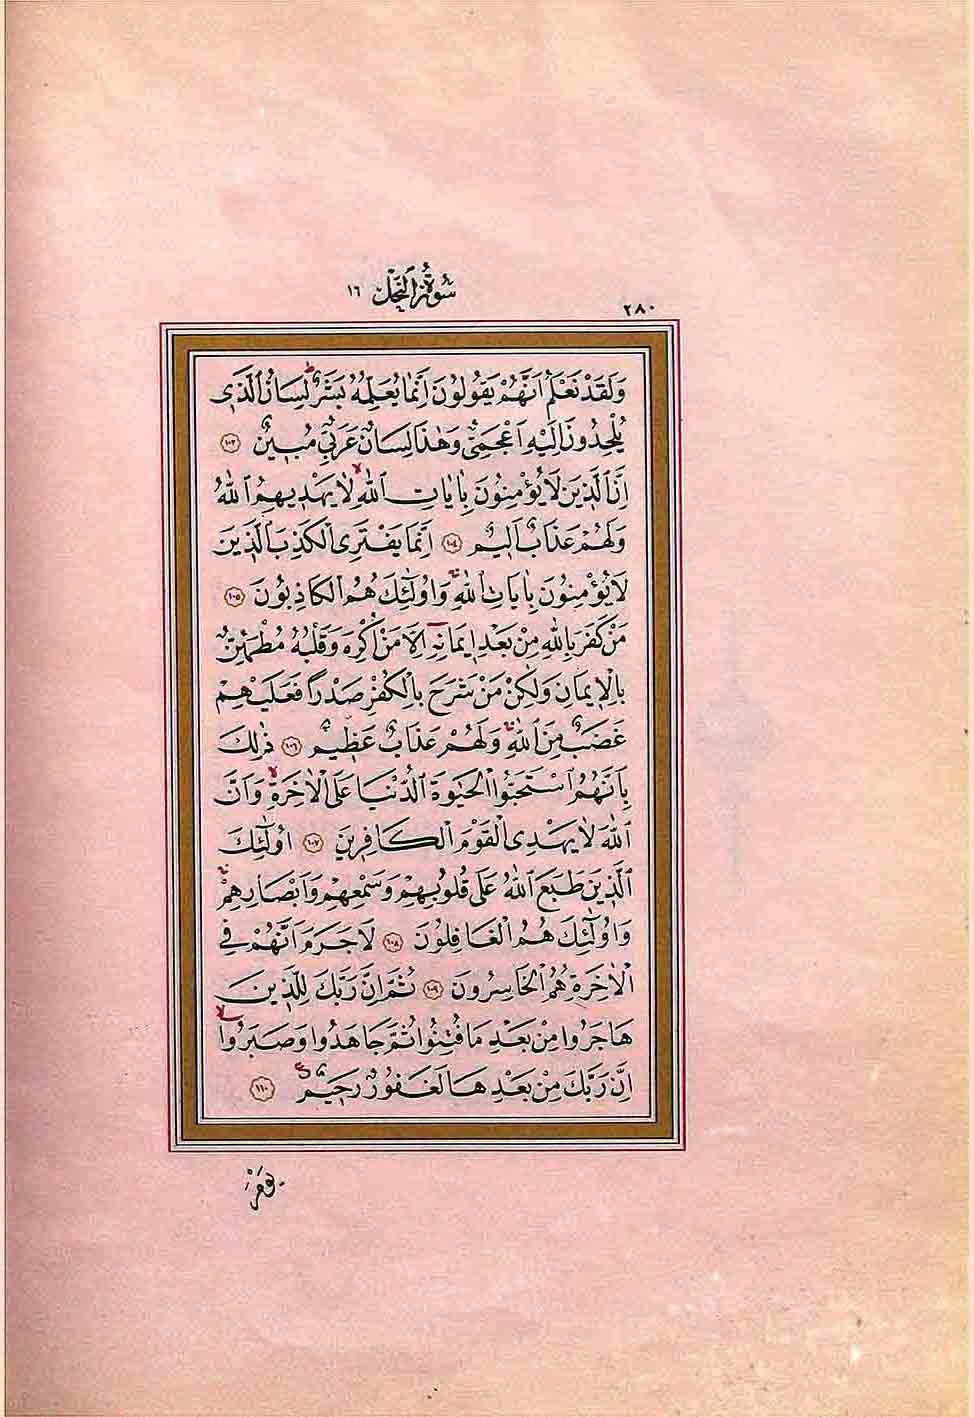 سُورَةُ النَّحْلِ ١٦
٢٨٠
وَلَقَدْ نَعْلَمُ اَنَّهُمْ يَقُولُونَ اِنَّمَا يُعَلِّمُهُ بَشَرٌ لِسَانُ الَّذ۪ي
يُلْحِدُونَ اِلَيْهِ اَعْجَمِيٌّ وَهٰذَا لِسَانٌ عَرَبِيٌّ مُب۪ينٌ ١٠٣
اِنَّ الَّذ۪ينَ لَا يُؤْمِنُونَ بِاٰيَاتِ اللّٰهِ لَا يَهْد۪يهِمُ اللّٰهُ
وَلَهُمْ عَذَابٌ اَل۪يمٌ ١٠٤ اِنَّمَا يَفْتَرِي الْكَذِبَ الَّذ۪ينَ
لَا يُؤْمِنُونَ بِاٰيَاتِ اللّٰهِ وَاُولٰٓئِكَ هُمُ الْكَاذِبُونَ ١٠٥
مَنْ كَفَرَ بِاللّٰهِ مِنْ بَعْدِ ا۪يمَانِه۪ٓ اِلَّا مَنْ اُكْرِهَ وَقَلْبُهُ مُطْمَئِنٌّ
بِالْا۪يمَانِ وَلٰكِنْ مَنْ شَرَحَ بِالْكُفْرِ صَدْرًا فَعَلَيْهِمْ
غَضَبٌ مِنَ اللّٰهِ وَلَهُمْ عَذَابٌ عَظ۪يمٌ ١٠٦ ذٰلِكَ
بِاَنَّهُمُ اسْتَحَبُّوا الْحَيٰوةَ الدُّنْيَا عَلَى الْاٰخِرَةِ وَاَنَّ
اللّٰهَ لَا يَهْدِي الْقَوْمَ الْكَافِر۪ينَ ١٠٧ اُولٰٓئِكَ
الَّذ۪ينَ طَبَعَ اللّٰهُ عَلٰى قُلُوبِهِمْ وَسَمْعِهِمْ وَاَبْصَارِهِمْ
وَاُولٰٓئِكَ هُمُ الْغَافِلُونَ ١٠٨ لَا جَرَمَ اَنَّهُمْ فِي
الْاٰخِرَةِ هُمُ الْخَاسِرُونَ ١٠٩ ثُمَّ اِنَّ رَبَّكَ لِلَّذ۪ينَ
هَاجَرُوا مِنْ بَعْدِ مَا فُتِنُوا ثُمَّ جَاهَدُوا وَصَبَرُوا
اِنَّ رَبَّكَ مِنْ بَعْدِهَا لَغَفُورٌ رَح۪يمٌ ١١٠
يَوْمَ